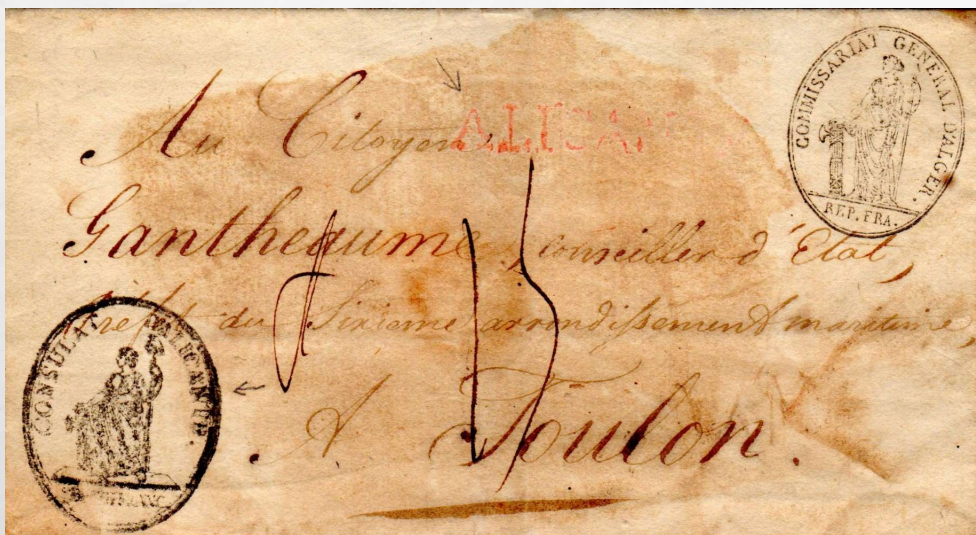 COMMISSARIAT GENERAL D'ALGER.
REP. FRA.
ALICAN
Au Citoyen
Gantheaume, conseiller d'Etat,
Préfet du Sixieme arrondissement maritime,
A Toulon.
CONSULAT